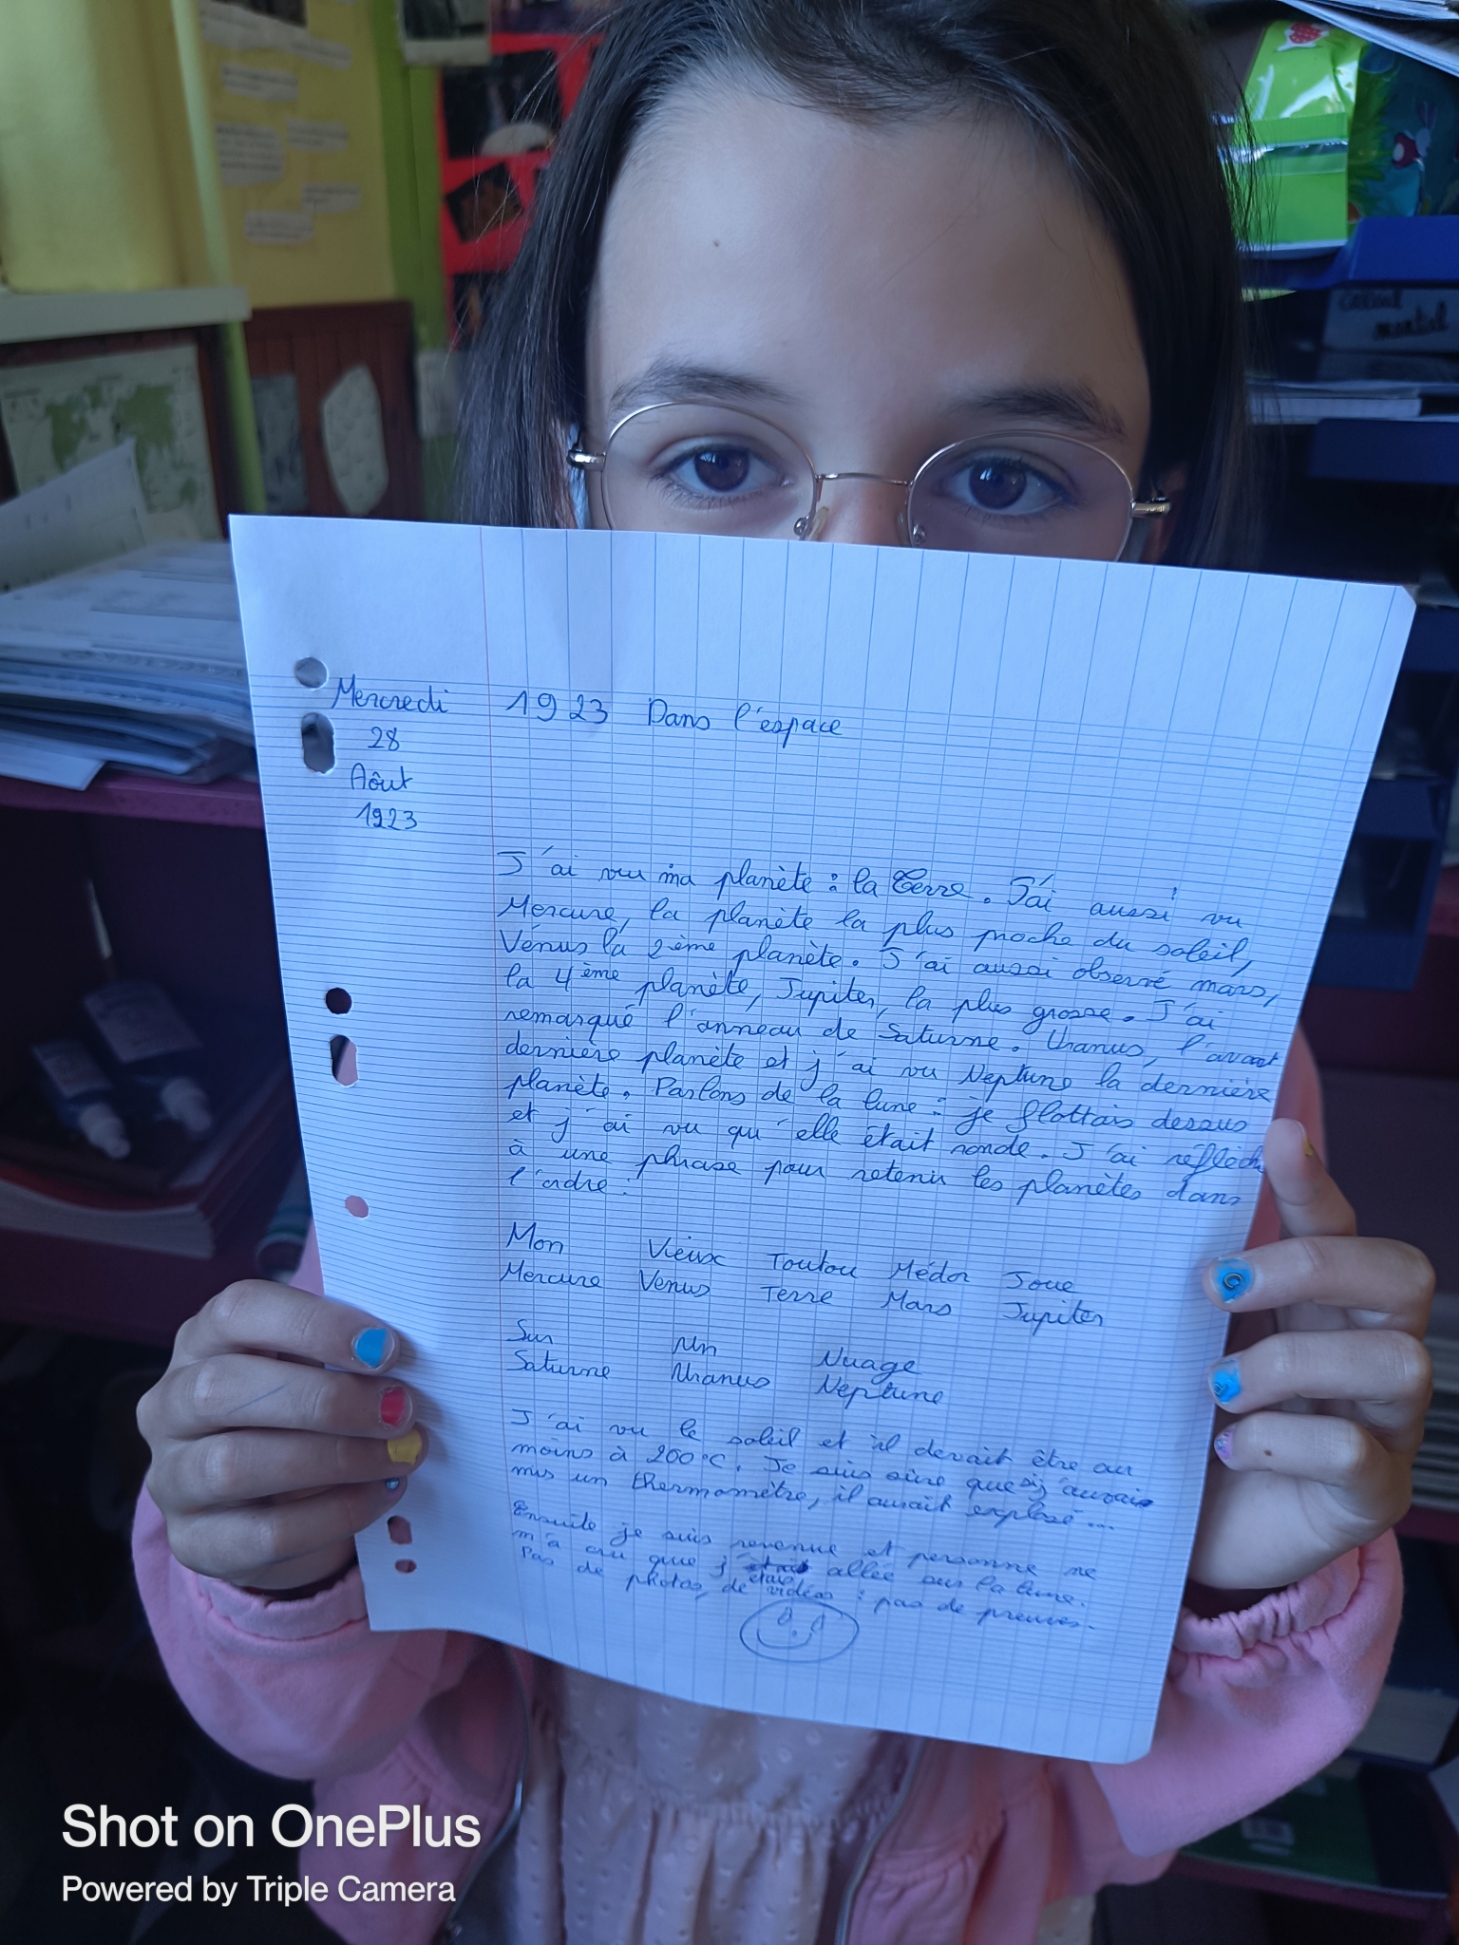 calcul
mental
Mercredi
28
Aôut
1923
1923 Dans l'espace
J'ai vu ma planète : la Terre. J'ai aussi vu
Mercure, la planète la plus proche du soleil,
Vénus la 2ème planète. J'ai aussi observé mars,
la 4ème planète, Jupiter, la plus grosse. J'ai
remarqué l'anneau de Saturne. Uranus, l'avant
dernière planète et j'ai vu Neptune la dernière
planète. Parlons de la lune : je flottais dessus
et j'ai vu qu'elle était ronde. J'ai réfléchi
à une phrase pour retenir les planètes dans
l'ordre :
Mon Vieux Toutou Médor Joue
Mercure Venus Terre Mars Jupiter
Sur Un Nuage
Saturne Uranus Neptune
J'ai vu le soleil et il devait être au
moins à 200°C. Je suis sûre que si j'aurais
mis un thermomètre, il aurait explosé ...
Ensuite je suis revenue et personne ne
m'a cru que j'étais allée sur la lune.
Pas de photos, de vidéos : pas de preuves.
Shot on OnePlus
Powered by Triple Camera